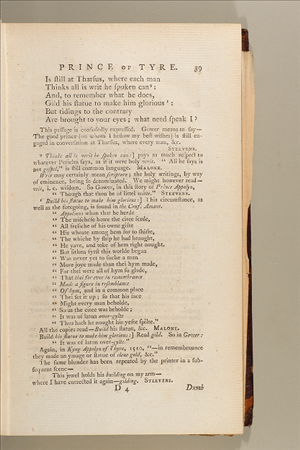 PRINCE OF TYRE. 39
Is still at Tharsus, where each man
Thinks all is writ he spoken can⁴:
And, to remember what he does,
Gild his statue to make him glorious⁵:
But tidings to the contrary
Are brought to your eyes; what need speak I?
This passage is confusedly expressed. Gower means to say—
The good prince (on whom I bestow my best wishes) is still en-
gaged in conversation at Tharsus, where every man, &c.
STEEVENS.
⁴ Thinks all is writ he spoken can:] pays as much respect to
whatever Pericles says, as if it were holy writ. "All he says is
not gospel," is still common language. MALONE.
Writ may certainly mean scripture; the holy writings, by way
of eminence, being so denominated. We might however read—
wit, i. e. wisdom. So Gower, in this story of Prince Appolyn,
" Though that thou be of littel witte." STEEVENS.
⁵ Build his statue to make him glorious:] This circumstance, as
well as the foregoing, is found in the Conf. Amant.
" Appolinus whan that he herde
" The mischefe howe the citee ferde,
" All freliche of his owne gifte
" His wheate among hem for to shifte,
" The whiche by ship he had brought,
" He yave, and toke of hem right nought.
" But sithen fyrst this worlde began
" Was never yet to suche a man
" More joye made than thei hym made,
" For thei were all of hym so glade,
" That thei for ever in remembrance
" Made a figure in resemblance
" Of hym, and in a common place
" Thei set it up; so that his face
" Might every man beholde,
" So as the citee was beholde;
" It was of latun over-gylte
" Thus hath he nought his yefte spilte."
All the copies read—Build his statue, &c. MALONE.
Build his statue to make him glorious:] Read gild. So in Gower:
" It was of laton over-gylte."
Again, in Kyng Appolyn of Thyre, 1510, "—in remembraunce
they made an ymage or statue of clene gold, &c."
The same blunder has been repeated by the printer in a sub-
sequent scene—
This jewel holds his building on my arm—
where I have corrected it again—gilding. STEEVENS.
D 4 Dumb